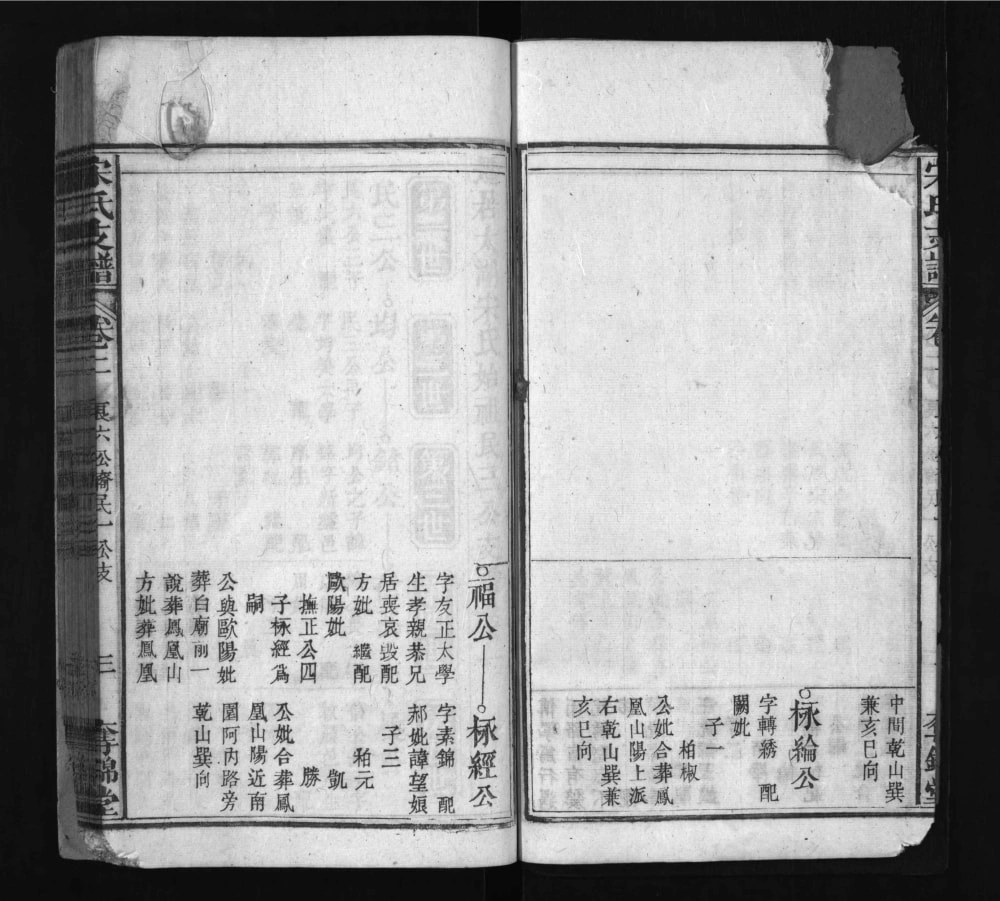 中間乾山巽
兼亥巳向
栐綸公
字轉綉 配
闕妣
子一
柏椒
公妣合葬鳳
凰山陽上派
右乾山巽兼
亥巳向
福公
栐經公
字友正太學
生孝親恭兄
居喪哀毀配
方妣 繼配
歐陽妣
撫正公四
子栐經爲
嗣
公與歐陽妣
葬白廟前一
說葬鳳凰山
方妣葬鳳凰
字素錦 配
郝妣諱望娘
子三
柏元
凱
勝
公妣合葬鳳
凰山陽近南
圍阿內路旁
乾山巽向
宋氏支譜
卷二
裏六公裔民一公支
三
奪錦堂